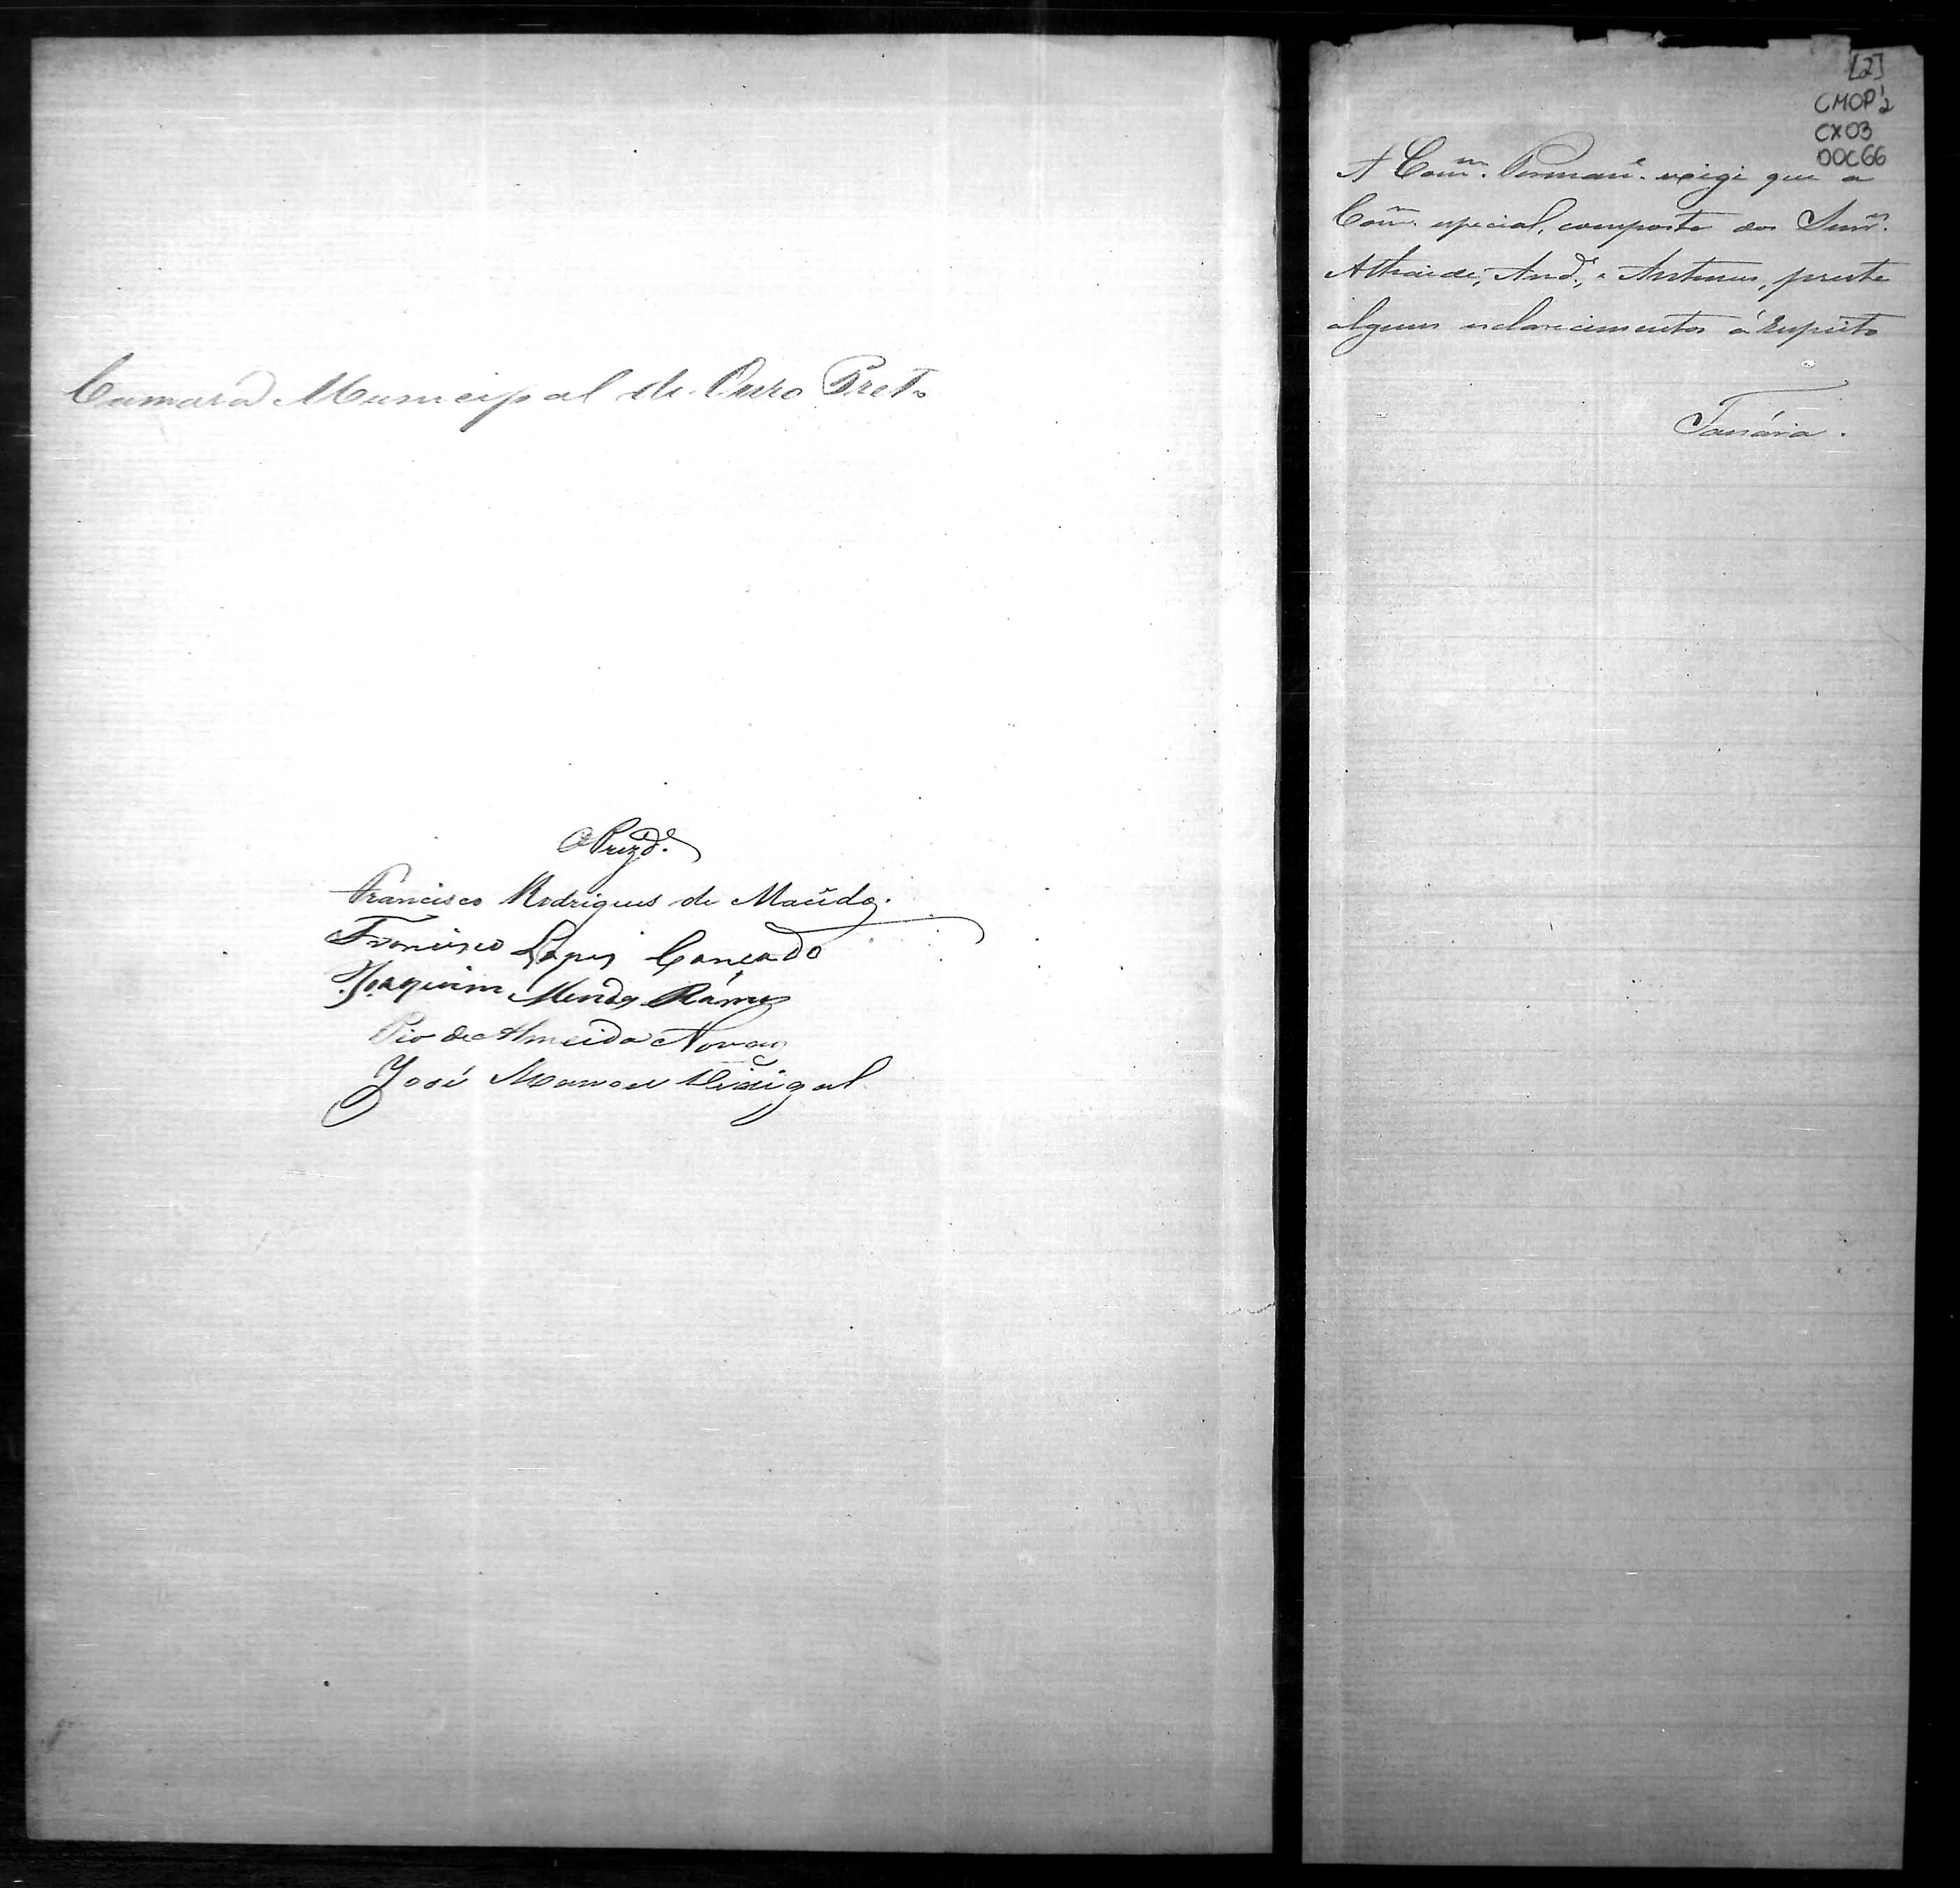 Camara Municipal de Ouro Preto
O Prezd.e
Francisco Rodrigues de Macêdo.
Francisco Lopes Cançado
Joaquim Mendes Ramos
Pio de Almeida Novaes
José Manoel Vidigal
[2]
CMOP'2
CX03
DOC66
A Com.m Perman.e exige que a
Com.m especial, composta dos Senr.es
Athaide, And.e, e Antunes, preste
alguns esclarecimentos á respeito